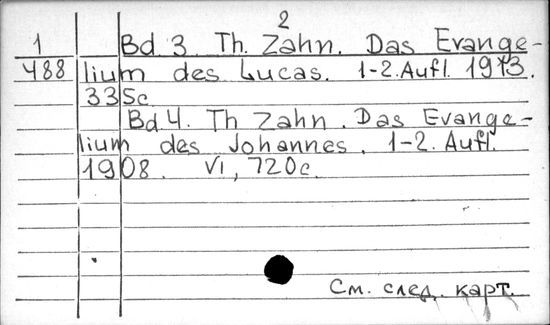 2
1 Bd 3. Th. Zahn. Das Evange-
488 lium des Lucas. 1-2. Aufl. 1913.
335c.
Bd 4. Th Zahn. Das Evange-
lium des Johannes. 1-2. Aufl.
1908. VI, 720c.
См. след. карт.